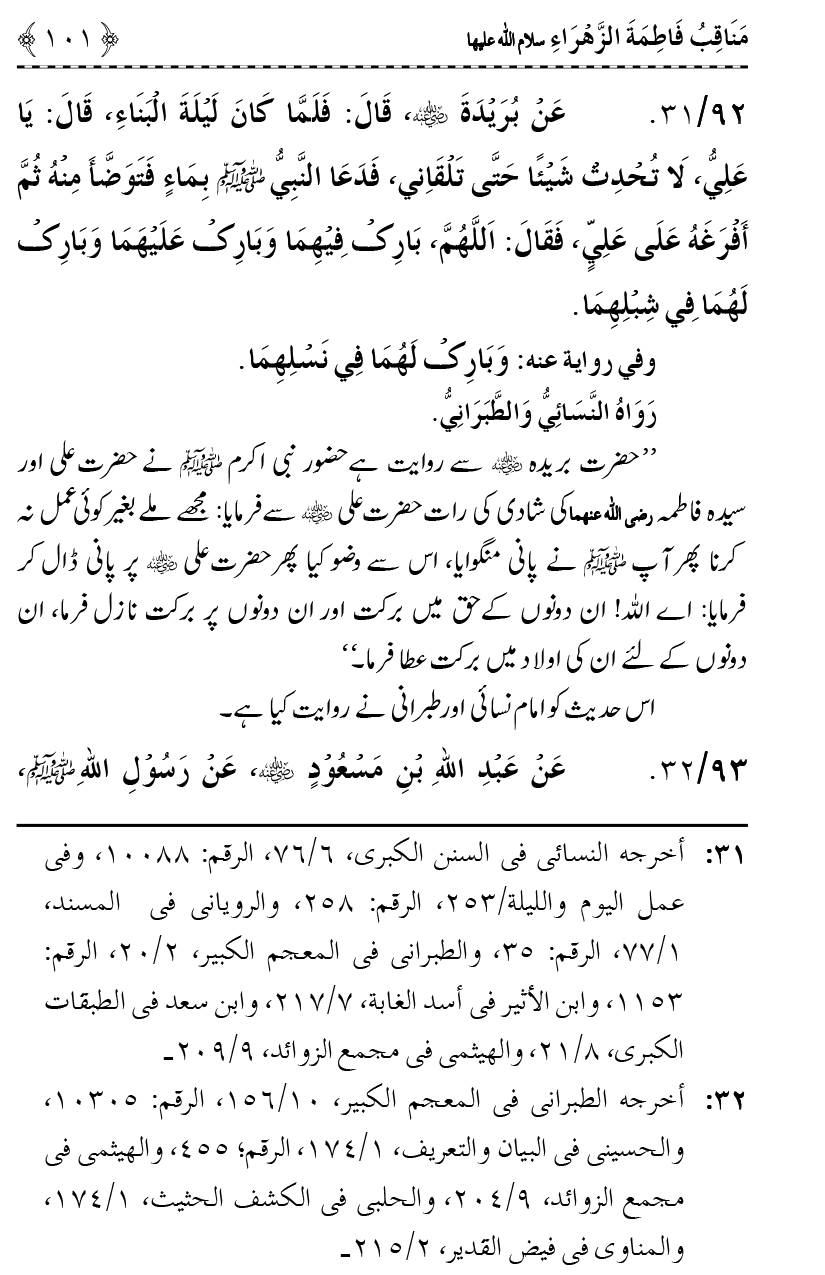 مَنَاقِبُ فَاطِمَةَ الزَّهْرَاءِ سلام اللہ علیها ﴿١٠١﴾
٣١/٩٢. عَنْ بُرَيْدَةَ رضي الله عنه، قَالَ: فَلَمَّا كَانَ لَيْلَةَ الْبَنَاءِ، قَالَ: يَا
عَلِيُّ، لَا تُحْدِثْ شَيْئًا حَتَّى تَلْقَانِي، فَدَعَا النَّبِيُّ ﷺ بِمَاءٍ فَتَوَضَّأَ مِنْهُ ثُمَّ
أَفْرَغَهُ عَلَى عَلِيٍّ، فَقَالَ: اَللَّهُمَّ، بَارِكْ فِيْهِمَا وَبَارِكْ عَلَيْهَمَا وَبَارِكْ
لَهُمَا فِي شِبْلِهِمَا.
وفي رواية عنه: وَبَارِكْ لَهُمَا فِي نَسْلِهِمَا.
رَوَاهُ النَّسَائِيُّ وَالطَّبَرَانِيُّ.
’’حضرت بریدہ رضي الله عنه سے روایت ہے حضور نبی اکرم ﷺ نے حضرت علی اور
سیدہ فاطمہ رضی اللہ عنہما کی شادی کی رات حضرت علی رضي الله عنه سے فرمایا: مجھے ملے بغیر کوئی عمل نہ
کرنا پھر آپ ﷺ نے پانی منگوایا، اس سے وضو کیا پھر حضرت علی رضي الله عنه پر پانی ڈال کر
فرمایا: اے اللہ! ان دونوں کے حق میں برکت اور ان دونوں پر برکت نازل فرما، ان
دونوں کے لئے ان کی اولاد میں برکت عطا فرما۔‘‘
اس حدیث کو امام نسائی اور طبرانی نے روایت کیا ہے۔
٣٢/٩٣. عَنْ عَبْدِ اللهِ بْنِ مَسْعُوْدٍ رضي الله عنه، عَنْ رَسُوْلِ اللهِ ﷺ،
٣١: أخرجه النسائى فى السنن الكبرى، ٧٦/٦، الرقم: ١٠٠٨٨، وفى
عمل اليوم والليلة/٢٥٣، الرقم: ٢٥٨، والرويانى فى المسند،
٧٧/١، الرقم: ٣٥، والطبرانى فى المعجم الكبير، ٢٠/٢، الرقم:
١١٥٣، وابن الأثير فى أسد الغابة، ٢١٧/٧، وابن سعد فى الطبقات
الكبرى، ٢١/٨، والهيثمى فى مجمع الزوائد، ٢٠٩/٩۔
٣٢: أخرجه الطبرانى فى المعجم الكبير، ١٥٦/١٠، الرقم: ١٠٣٠٥،
والحسينى فى البيان والتعريف، ١٧٤/١، الرقم؛ ٤٥٥، والهيثمى فى
مجمع الزوائد، ٢٠٤/٩، والحلبى فى الكشف الحثيث، ١٧٤/١،
والمناوى فى فيض القدير، ٢١٥/٢۔